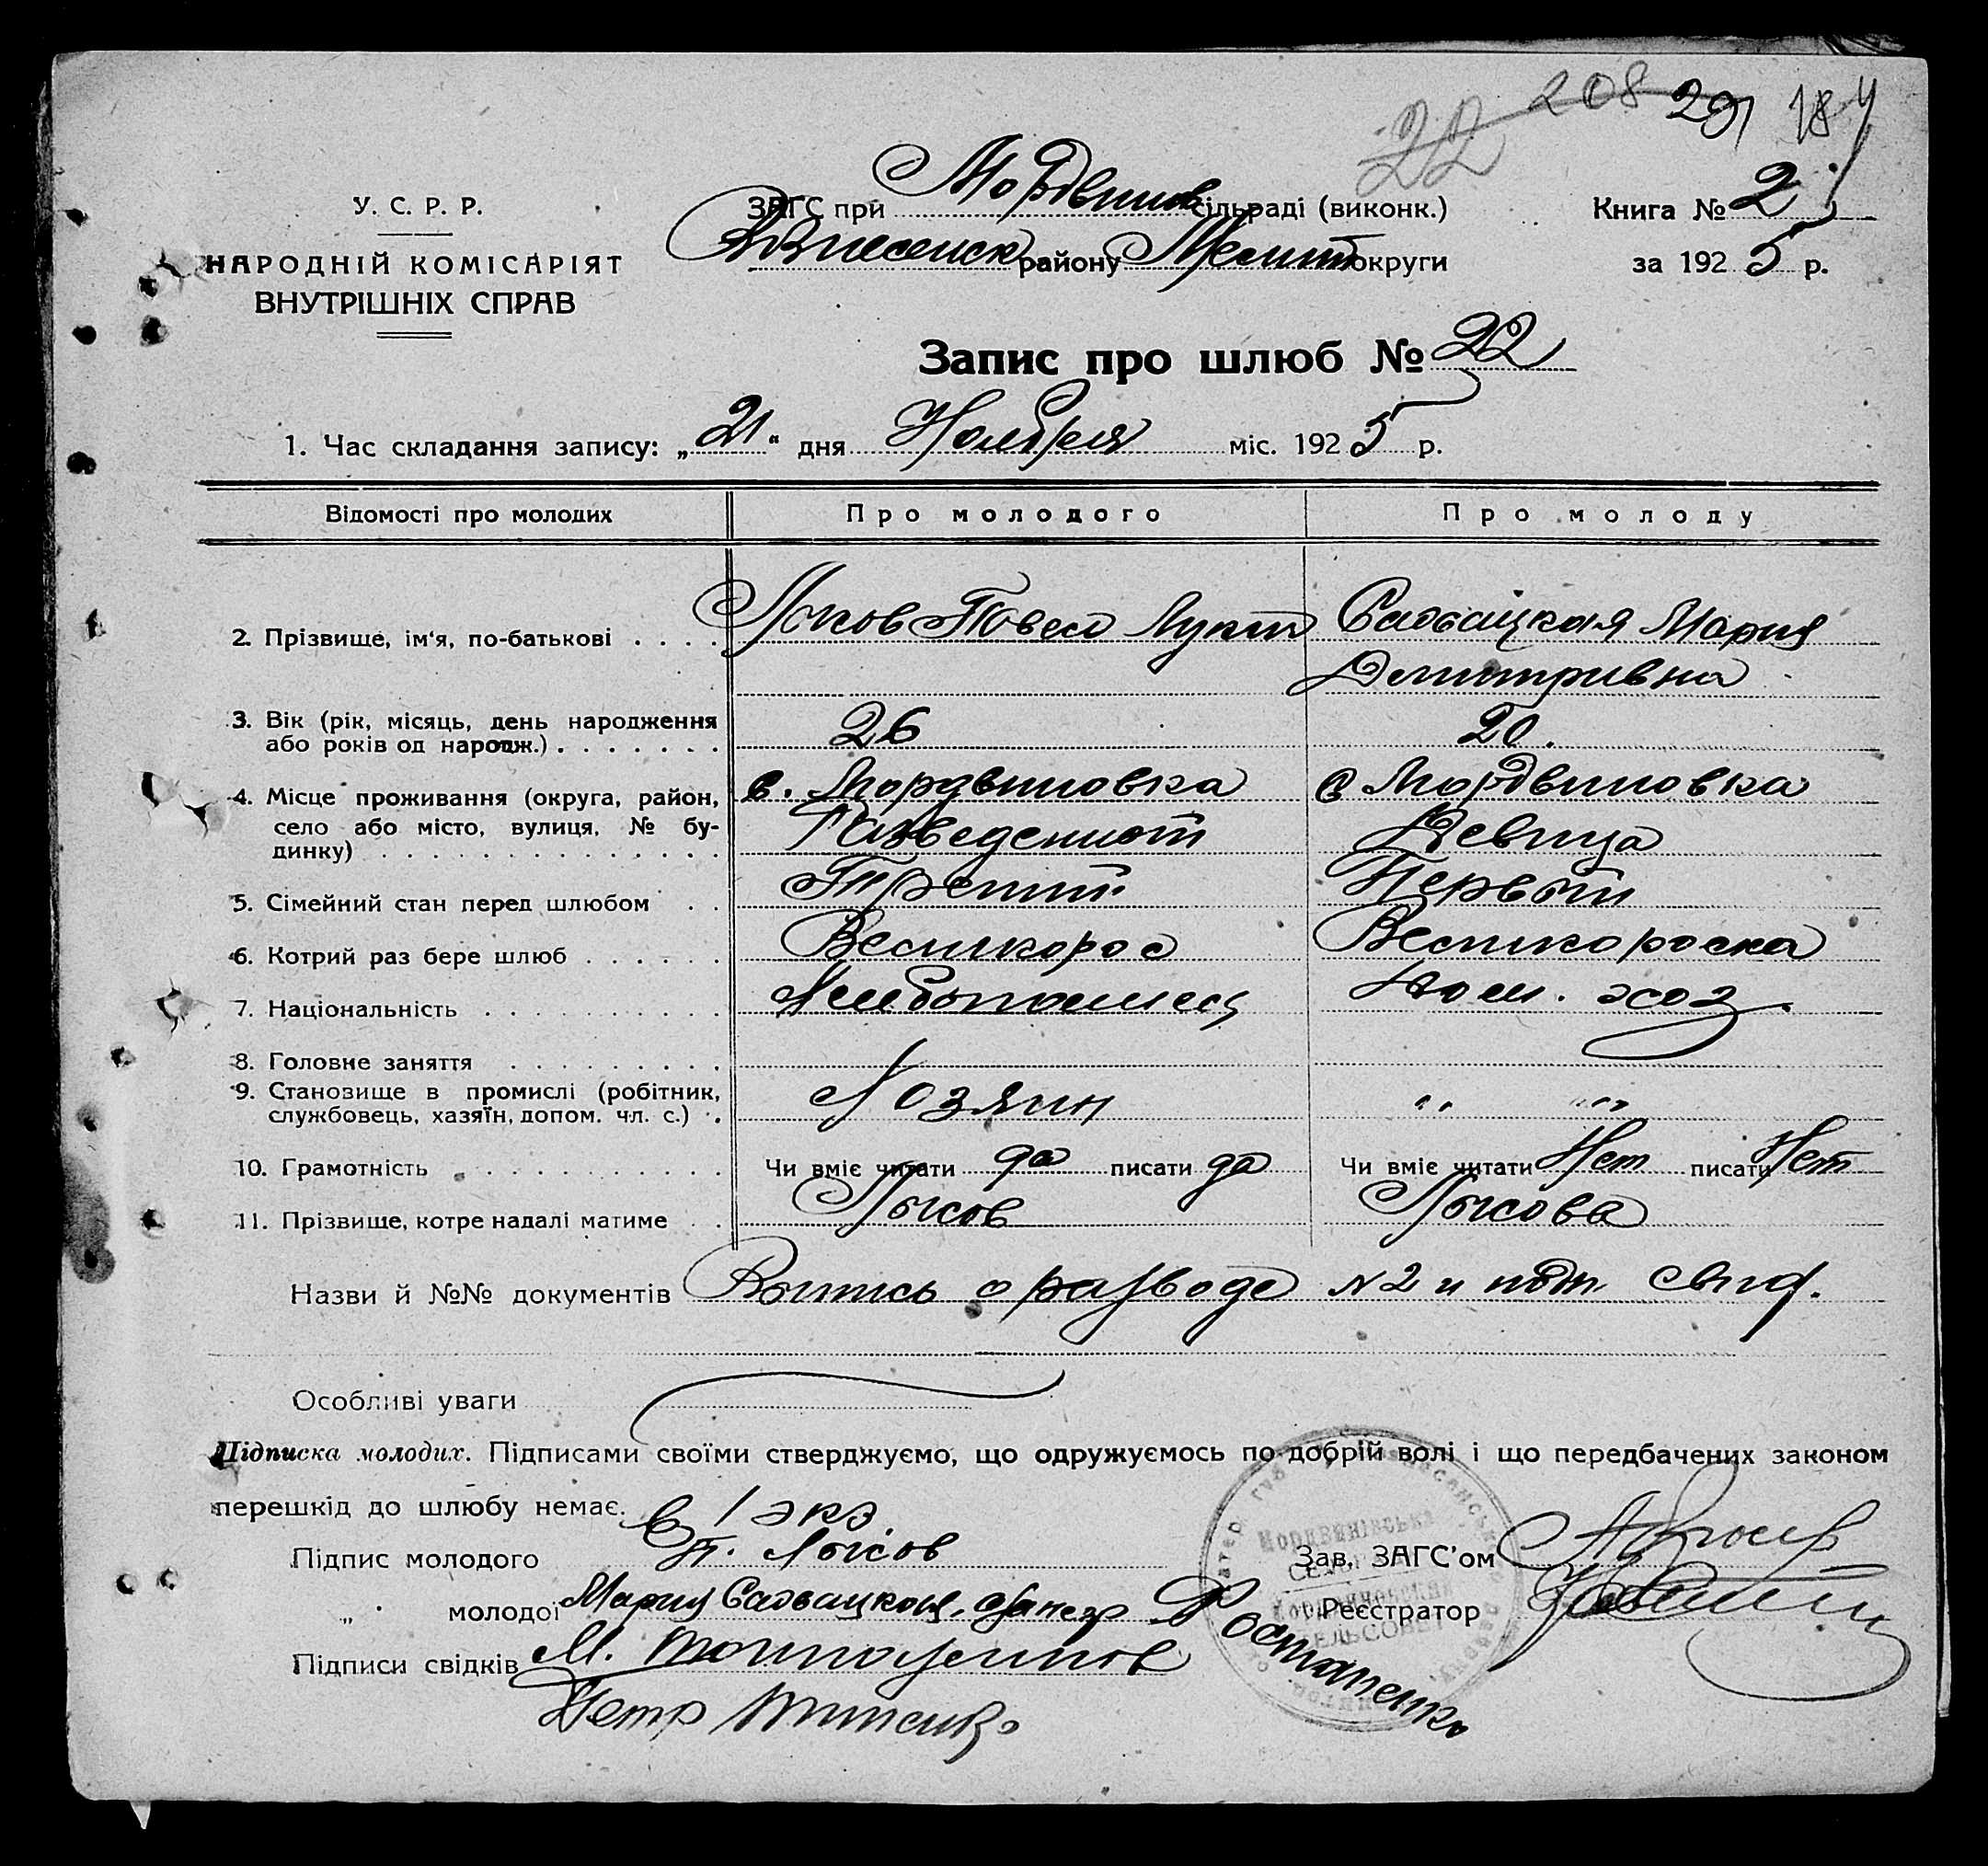 22 208 291 184
У. С. Р. Р.
НАРОДНІЙ КОМІСАРІЯТ
ВНУТРІШНІХ СПРАВ
ЗАГС при Мордвинов сільраді (виконк.)
Вознесенск району Мелит округи
Книга № 2
за 1925 р.
Запис про шлюб № 22
1. Час складання запису: „21“ дня Ноября міс. 1925 р.
Відомості про молодих Про молодого Про молоду
2. Прізвище, ім'я, по-батькові . . . . Лысов Павел Лукич Садовацкая Мария
Демитривна
3. Вік (рік, місяць, день народження
або років од народж.) . . . . . . . 26 20.
4. Місце проживання (округа, район, с. Мордвиновка с Мордвиновка
село або місто, вулиця, № бу-
динку) . . . . . . . . . . . . . . Разведенный Девица
5. Сімейний стан перед шлюбом . . Третий Первый
6. Котрий раз бере шлюб . . . . . . Великорос Великороска
7. Національність . . . . . . . . . . Хлебопашец Дом. хоз.
8. Головне заняття . . . . . . . . .
9. Становище в промислі (робітник,
службовець, хазяїн, допом. чл. с.) . Хозяин " "
10. Грамотність . . . . . . . . . . Чи вміє читати да писати да Чи вміє читати Нет писати Нет
11. Прізвище, котре надалі матиме . . Лысов Лысова
Назви й №№ документів Выпись о разводе N 2 и
Особливі уваги
Підписка молодих. Підписами своїми стверджуємо, що одружуємось по добрій волі і що передбачених законом
перешкід до шлюбу немає. 1 экз.
Підпис молодого П. Лысов
Зав. ЗАГС'ом
„ молодої Мария Садовацкая,
Реєстратор
Підписи свідків М.
Петр
Мордвинівська
СЕЛЬСОВЕТ